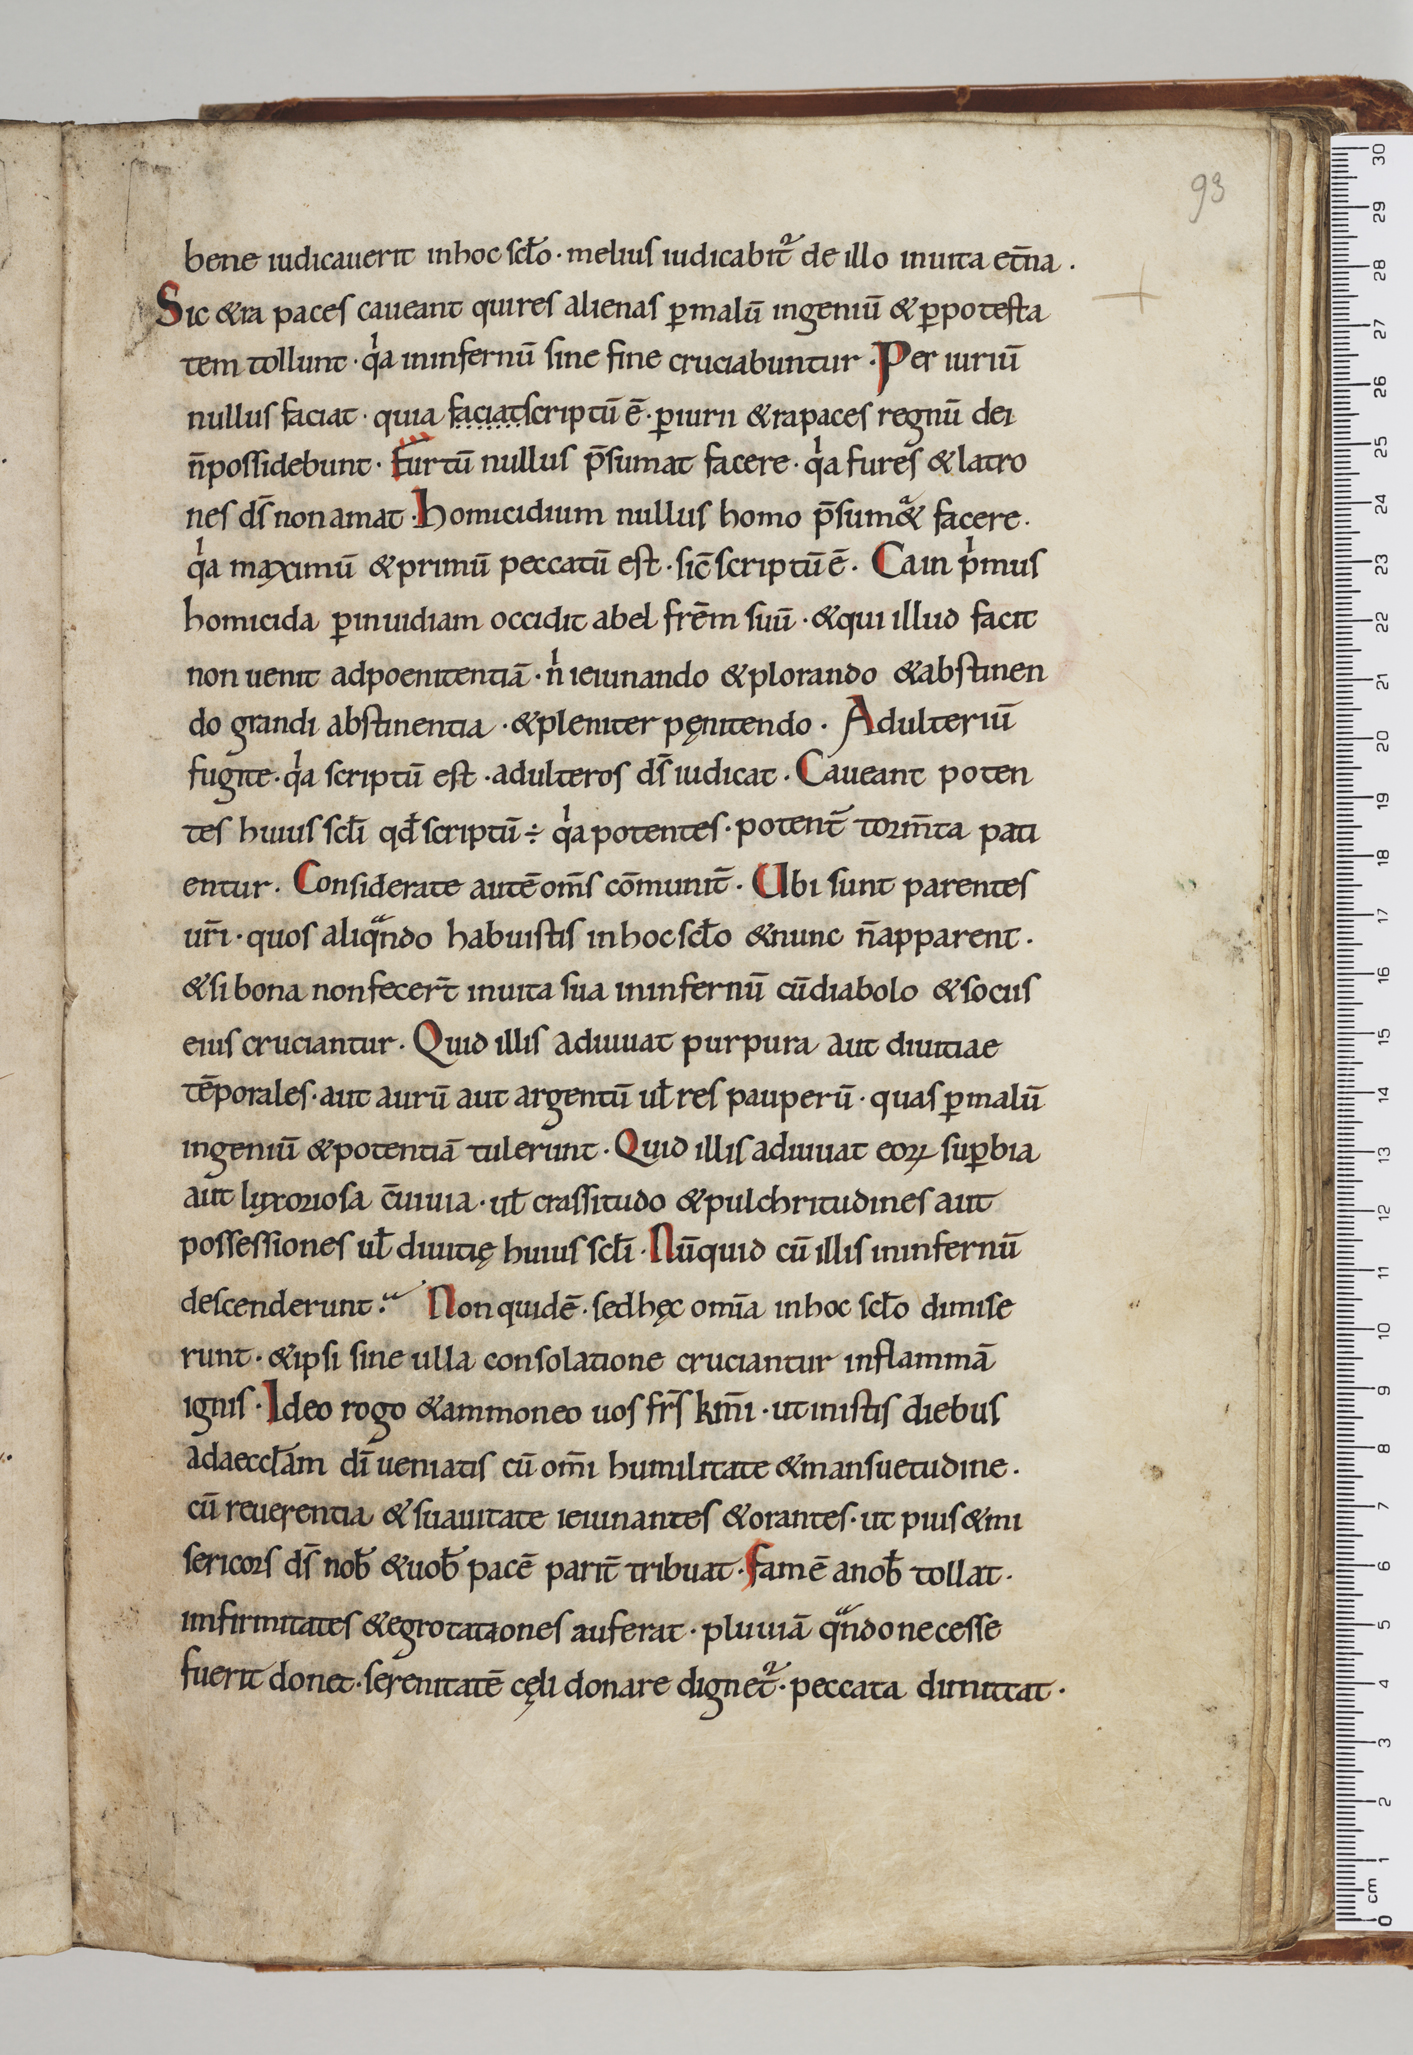 93
bene iudicauerit inhoc scło · melius iudicabit᷑ de illo inuita et̄na .
Sic &ra paces caueant quires alienas ꝑmalū ingeniū & ꝑpotesta
tem tollunt · qͥa ininfernū sine fine cruciabuntur · Per iuriū
nullus faciat · quia faciatscriptū ē · ꝑiurii &rapaces regnū dei
n̄possidebunt · furtū nullus p̄sumat facere · qͥa fures &latro
nes ds̄ nonamat · Homicidium nullus homo p̄sum&ͣ facere ·
qͥa maximū &primū peccatū est · sic̄ scriptū ē · Cain pͥmus
homicida ꝑinuidiam occidit abel frēm suū · &qui illud facit
non uenit adpoenitentiā · nͥ ieiunando &plorando &abstinen
do grandi abstinentia · &pleniter pęnitendo · Adulteriū
fugite · qͥa scriptū est · adulteros ds̄ iudicat · Caueant poten
tes huius scłi qđ scriptū ÷ qͥa potentes · potent̄ torm̄ta pati
entur · Considerate autē om̄s cōmunit̄ · Ubi sunt parentes
ur̄i · quos aliqͣndo habuistis inhocscło &nunc n̄apparent ·
&si bona nonfecer̄t inuita sua ininfernū cūdiabolo &sociis
eius cruciantur · Quid illis adiuuat purpura aut diuitiae
tēporales · aut aurū aut argentū uł res pauperū · quas ꝑmalū
ingeniū &potentiā tulerunt · Quid illis adiuuat eoꝝ suꝑbia
aut luxoriosa c̄uiuia · uł crassitudo &pulchritudines aut
possessiones uł diuitię huius scłi · Nūquid cū illis ininfernū
descenderunt · Non quidē · sedhęc omīa inhoc scło dimise
runt · &ipsi sine ulla consolatione cruciantur inflammā
ignis · Ideo rogo &ammoneo uos frs̄ km̄i · utinistis diebus
adaeccłam dī ueniatis cū om̄i humilitate &mansuetudine ·
cū reuerentia & suauitate ieiunantes &orantes · ut pius &mi
sericors ds̄ noƀ &uoƀ pacē parit̄ tribuat · famē anoƀ tollat ·
infirmitates &egrotationes auferat · pluuiā qͣndonecesse
fuerit donet · serenitatē cęli donare dignet᷑ · peccata dimittat ·